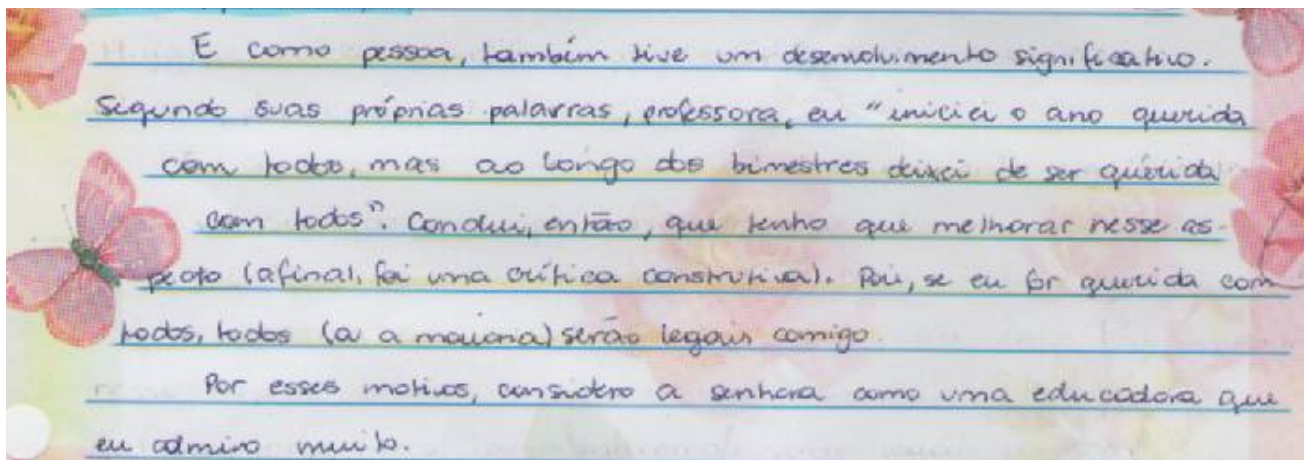 E como pessoa, também tive um desenvolvimento significativo.
Segundo suas próprias palavras, professora, eu "iniciei o ano querida
com todos, mas ao longo dos bimestres deixei de ser querida
com todos". Conclui, então, que tenho que melhorar nesse as-
pecto (afinal, foi uma crítica construtiva). Pois, se eu for querida com
todos, todos (ou a maioria) serão legais comigo.
Por esses motivos, considero a senhora como uma educadora que
eu admiro muito.